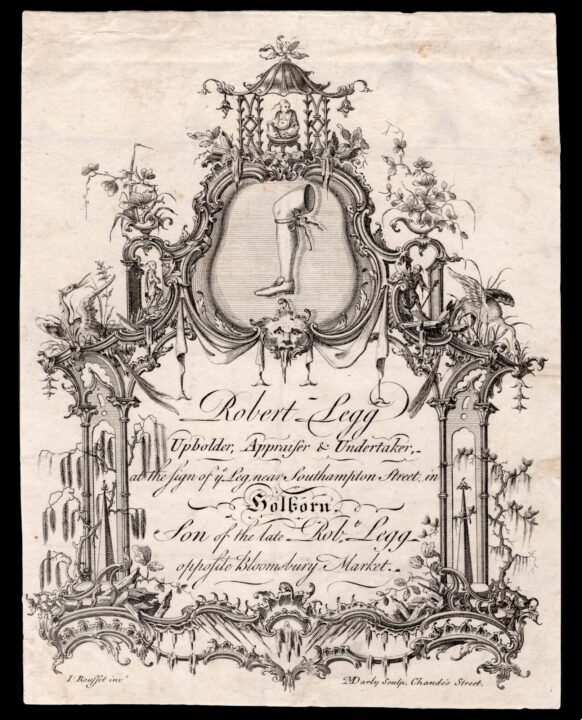 Robert Legg
Upholder, Appraiser & Undertaker,
at the sign of yᵉ Leg, near Southampton Street, in
Holborn.
Son of the late Robᵗ Legg
opposite Bloomsbury Market.
I. Rousset invᵗ
MDarly Sculp, Chando's Street.